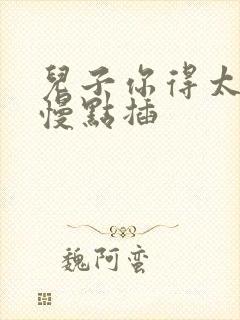 兒子你得太
慢點插
魏阿蛮